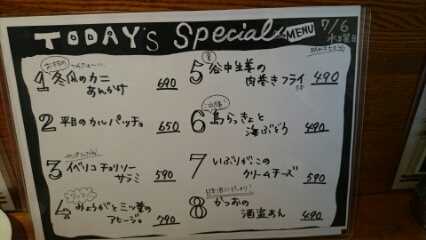 TODAY's Special MENU
7/6
水曜日
1 冬瓜のカニ
あんかけ 690
2 平目のカルパッチョ 650
3 イベリコチョリソー
サラミ 590
4 みょうがと三つ葉の
アヒージョ 790
5 谷中生姜の
肉巻きフライ 490
沖縄!
6 島らっきょと
海ぶどう 490
7 いぶりがこの
クリームチーズ 590
8 かつおの
酒盗あえ 490